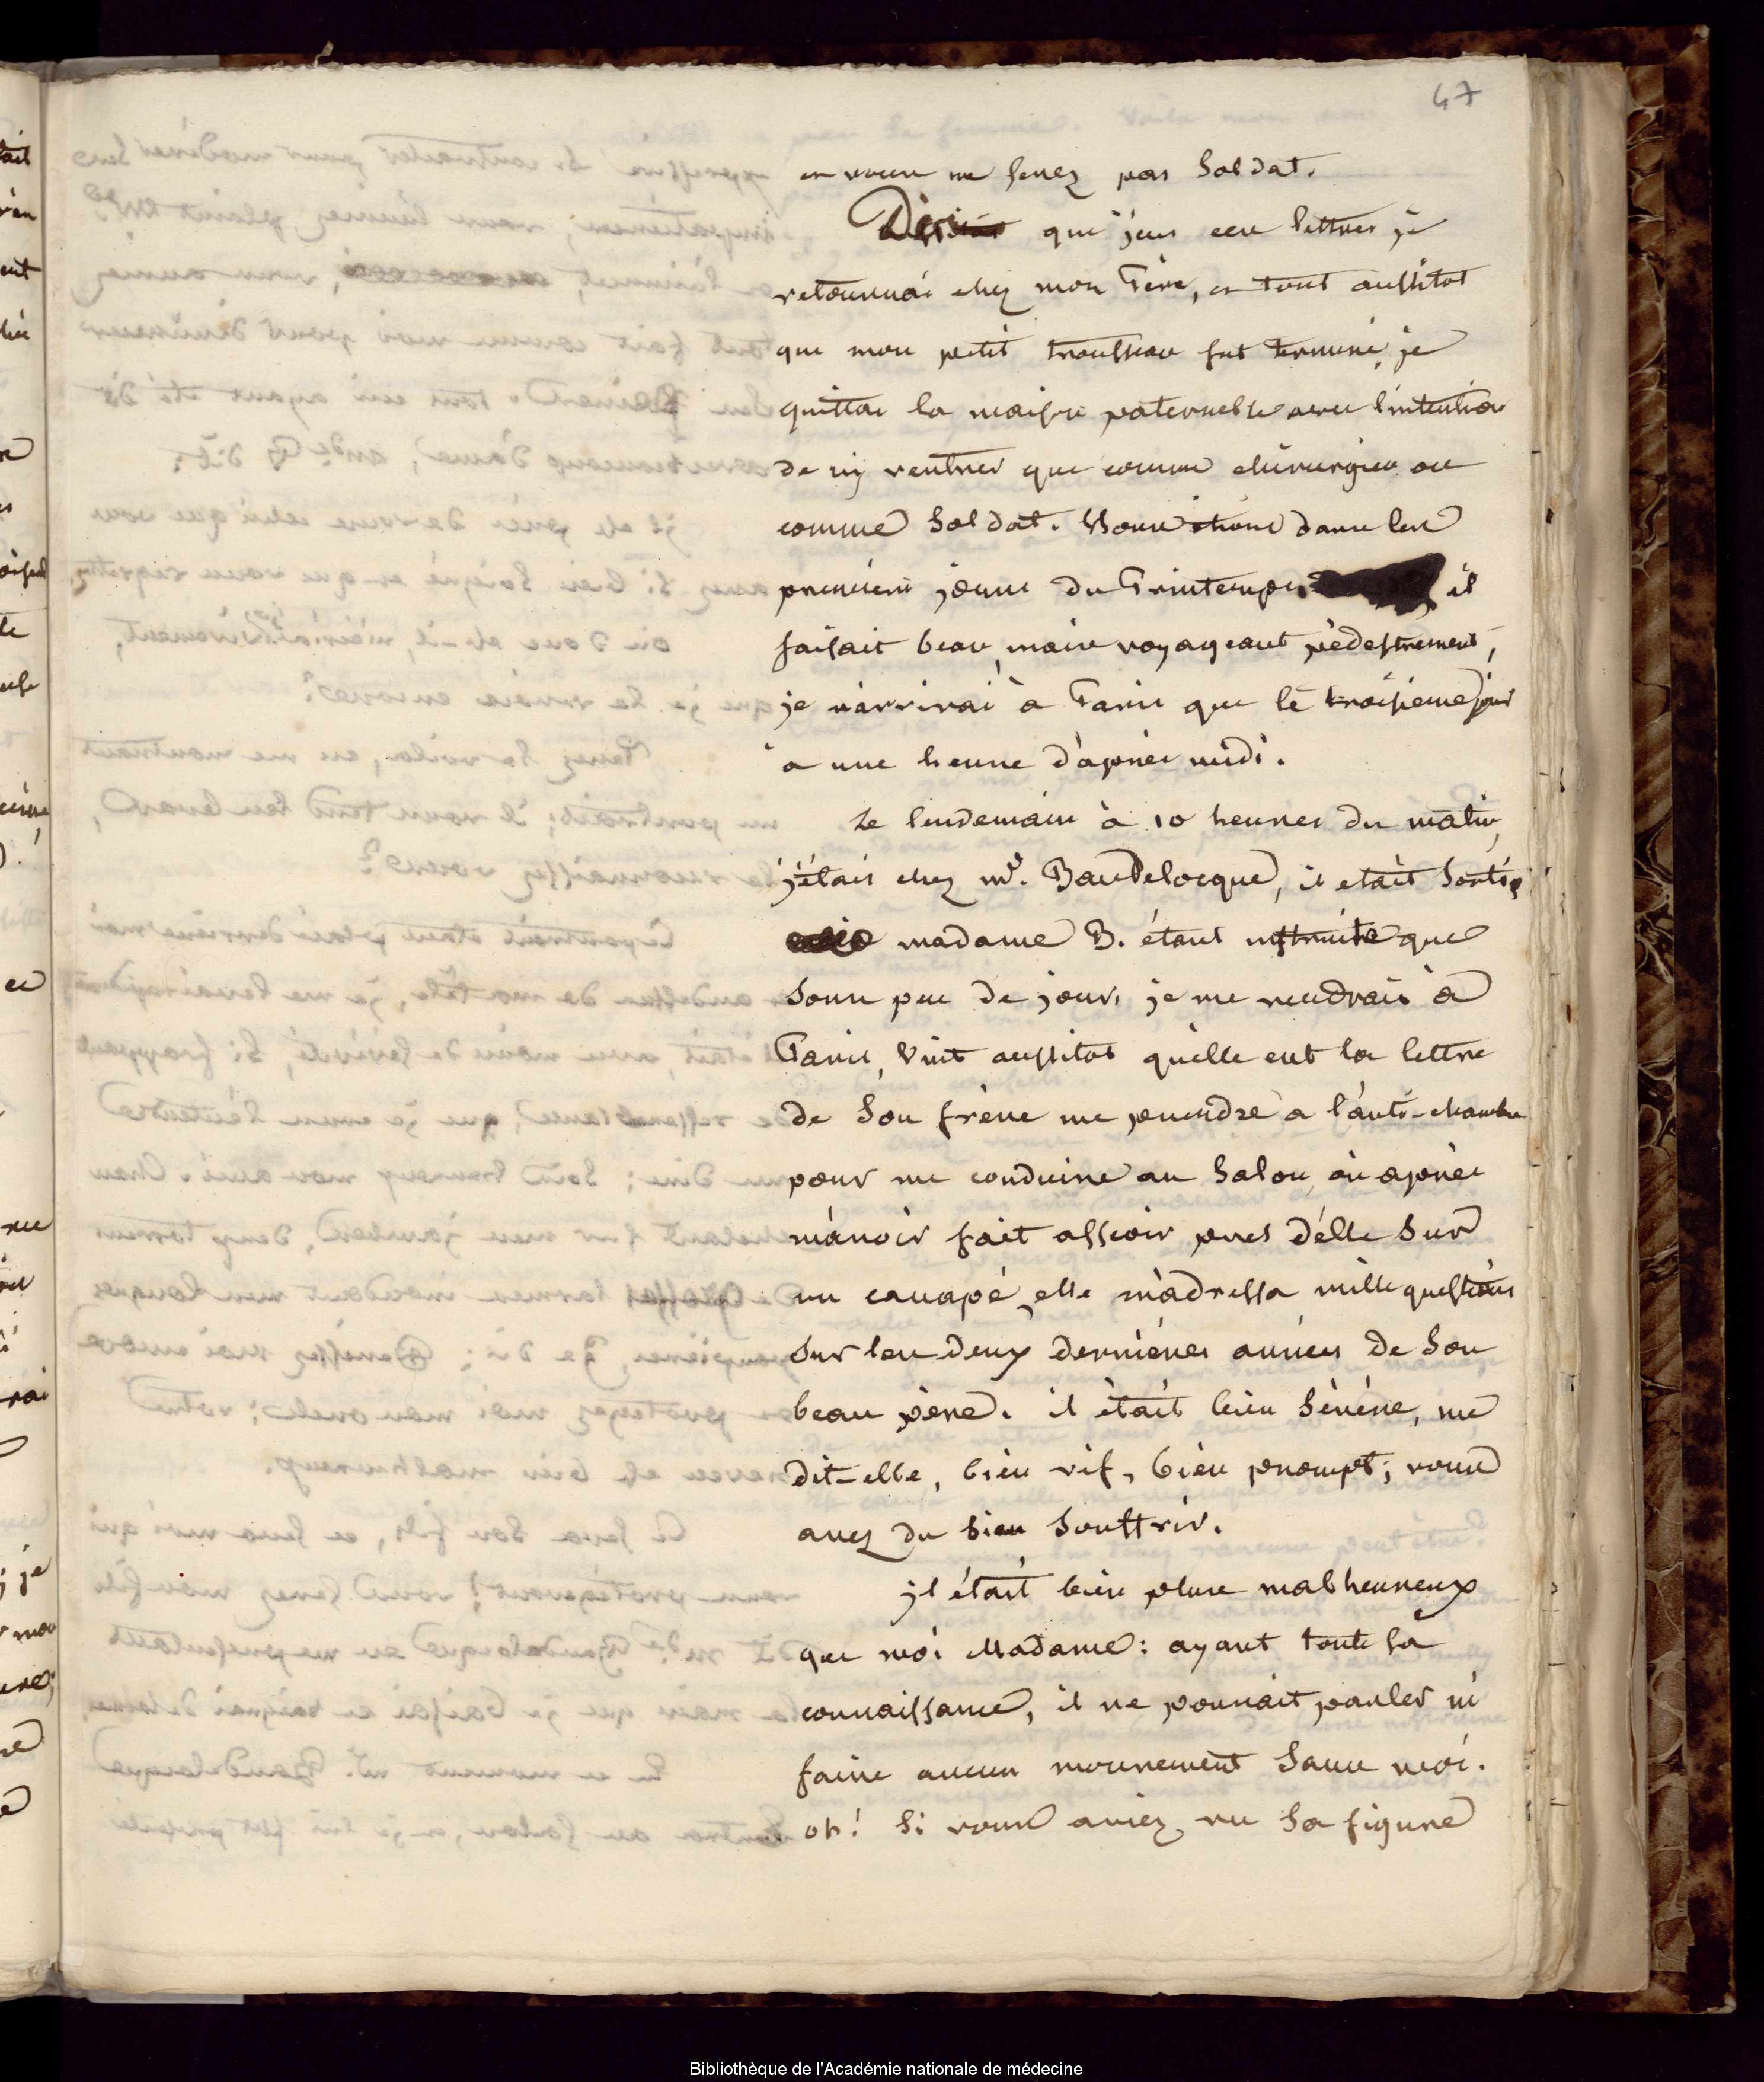 47
et vous ne serez pas Soldat.
Dès que j'eus ces lettres je
retournai chez mon Père, et tout aussitot
que mon petit trousseau fut terminé, je
quittai la maison paternelle avec l'intention
de n'y rentrer que comme chirurgien ou
comme Soldat. Nous étions dans les
premiers jours du Printemps il
faisait beau, mais voyageant pédestrement,
je n'arrivai à Paris que le troisieme jour
à une heure d'après midi.
Le lendemain à 10 heures du matin,
j'étais chez mr. Baudelocque, il etait Sorti,
madame B. étant instruite que
Sous peu de jours je me rendrais à
Paris, Vint aussitot qu'elle eut la lettre
de Son frère me prendre a l'anti-chambre
pour me conduire au Salon, où après
m'avoir fait asseoir près d'elle Sur
un canapé, elle m'adressa mille questions
Sur les deux dernières années de Son
beau père. il était bien Sévère, me
dit-elle, bien vif, bien prompt; vous
avez du bien Souffrir.
il était bien plus malheureux
que moi Madame: ayant toute sa
connaissance, il ne pouvait parler ni
faire aucun mouvement Sans moi.
oh! Si vous aviez vu Sa figure
Bibliothèque de l'Académie nationale de médecine